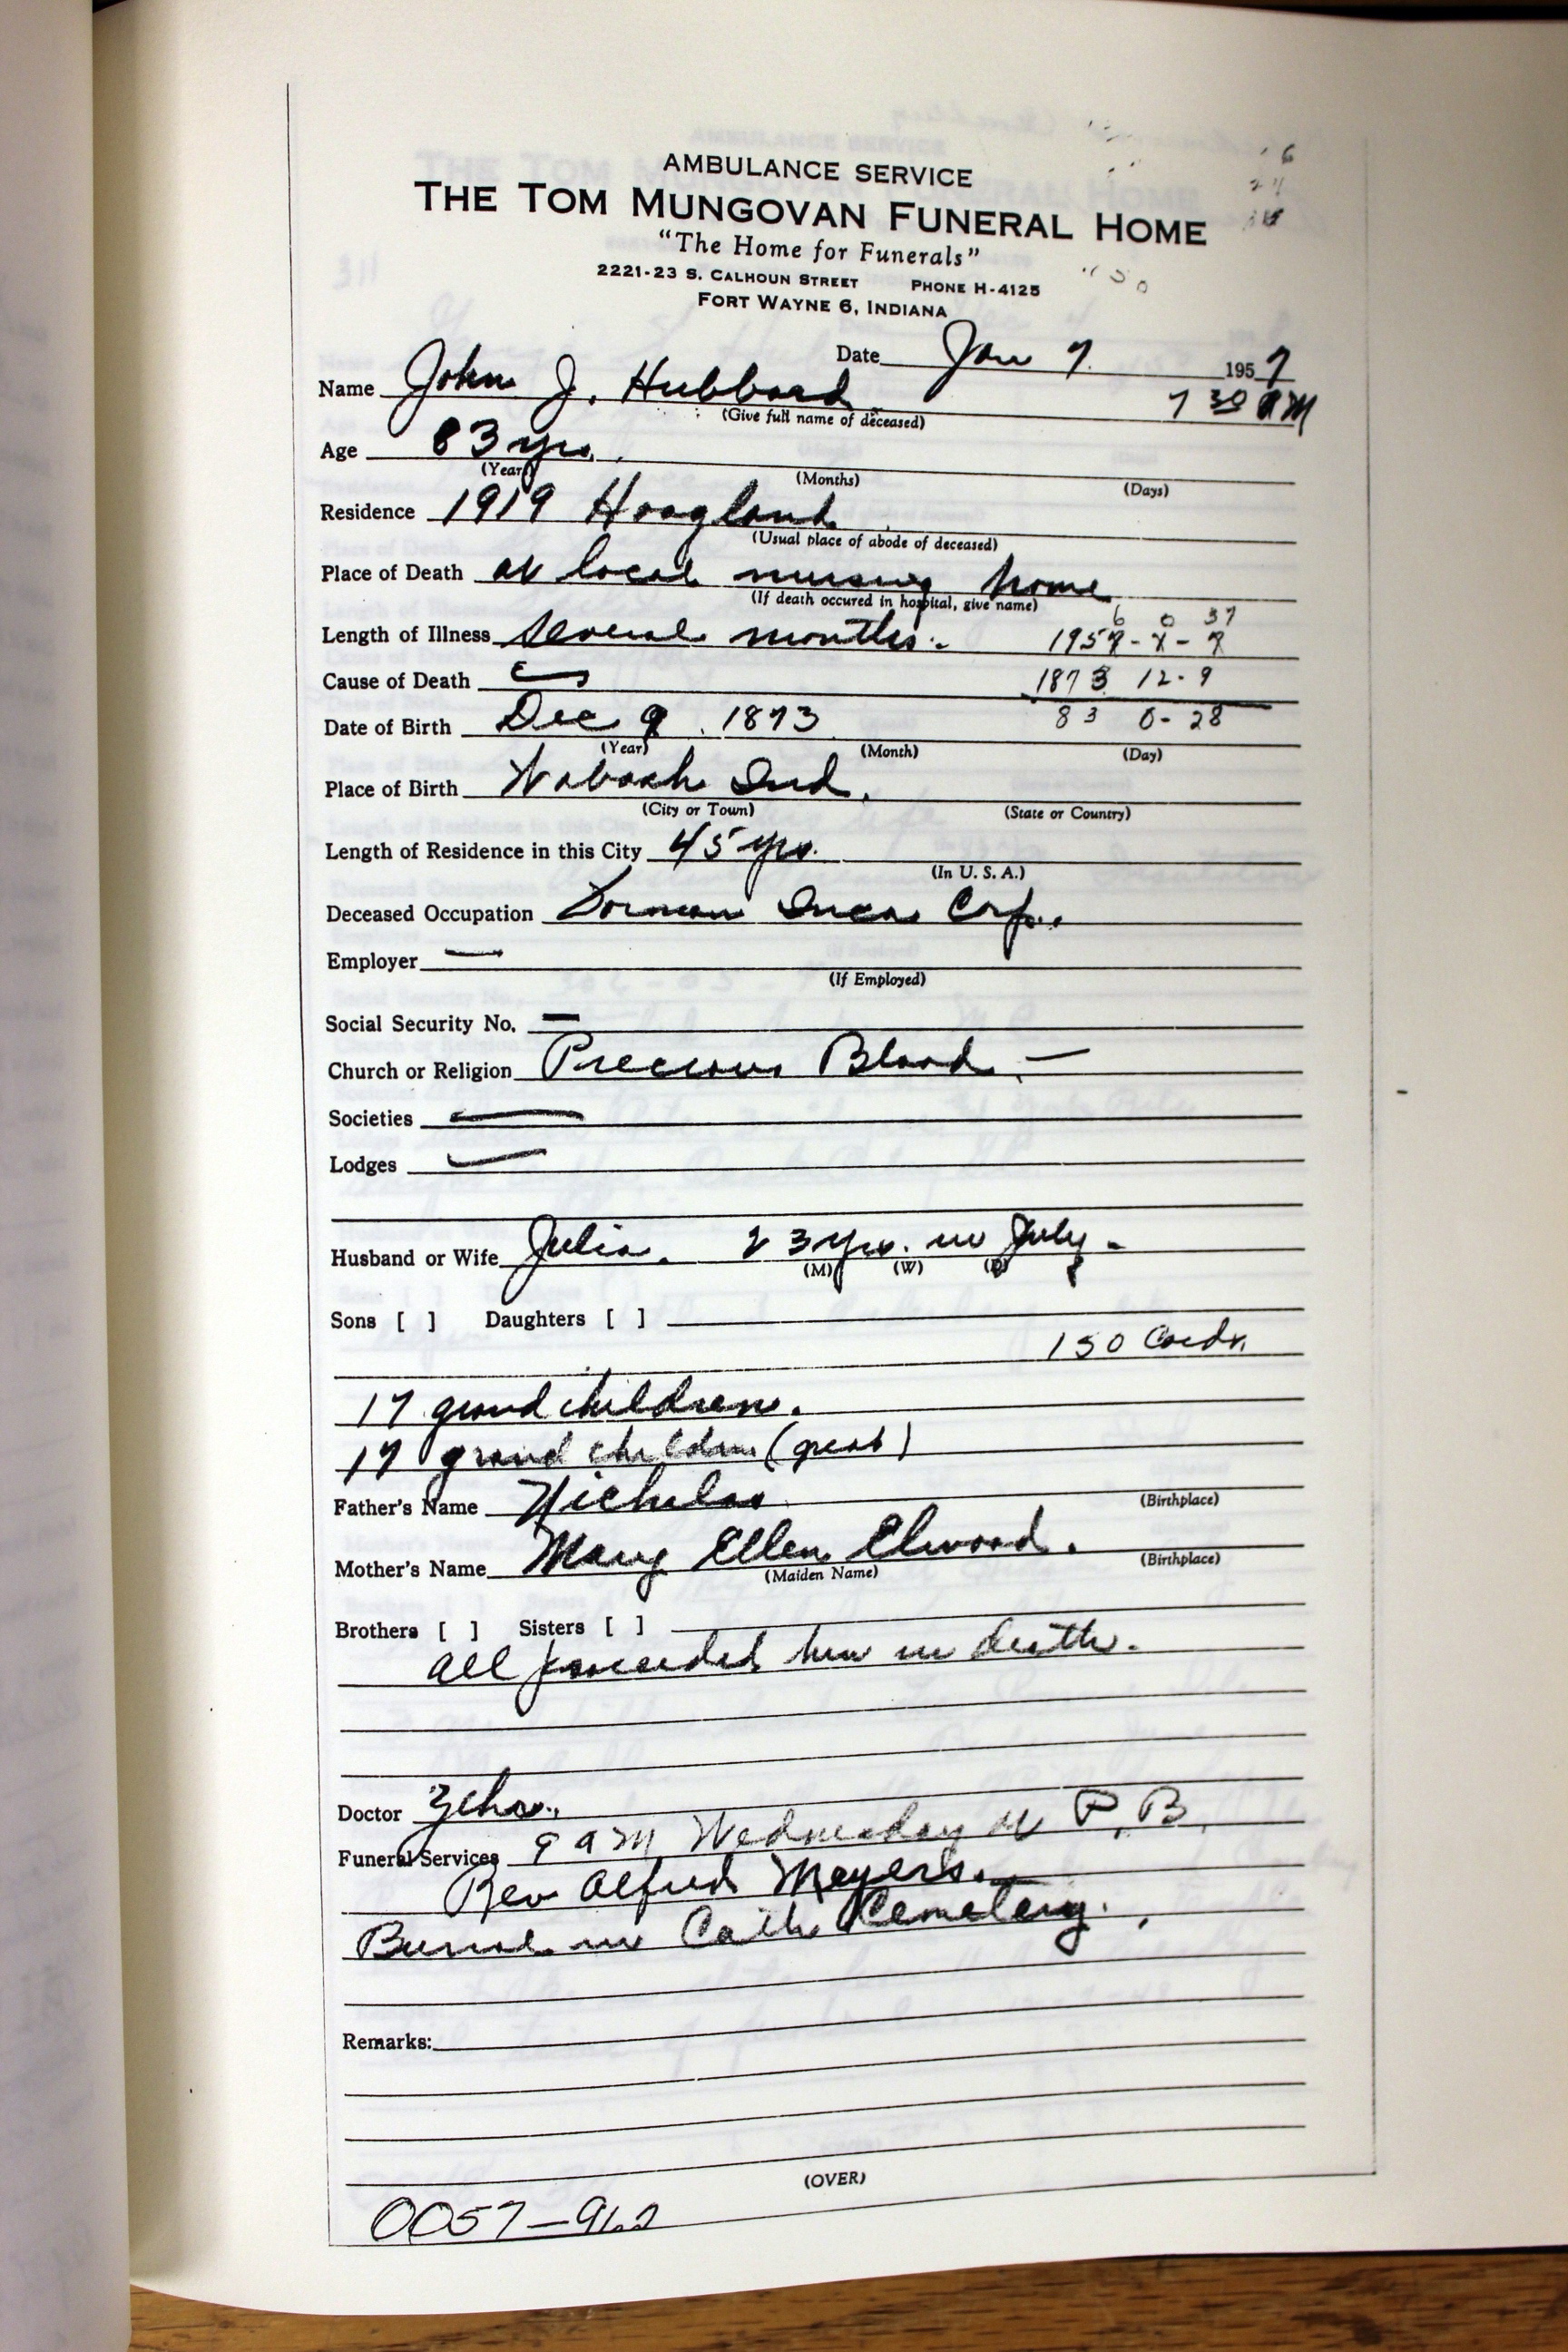 AMBULANCE SERVICE
THE TOM MUNGOVAN FUNERAL HOME
"The Home for Funerals"
2221-23 S. CALHOUN STREET PHONE H-4125
FORT WAYNE 6, INDIANA
Date Jan 7. 1957
Name John J. Hubbard 7 30 AM
(Give full name of deceased)
Age 83 yrs.
(Year) (Months) (Days)
Residence 1919 Hoagland
(Usual place of abode of deceased)
Place of Death at local nursing home
(If death occured in hospital, give name)
6 0 37
Length of Illness Several months. 1957-1-7
Cause of Death 1873 12-9
Date of Birth Dec 9. 1873 83 0-28
(Year) (Month) (Day)
Place of Birth Wabash Ind.
(City or Town) (State or Country)
Length of Residence in this City 45 yrs.
(In U. S. A.)
Deceased Occupation Corp.
Employer —
(If Employed)
Social Security No. —
Church or Religion Precious Blood. —
Societies —
Lodges —
Husband or Wife Julia. 23 yrs. in July -
(M) (W) (D)
Sons [ ] Daughters [ ]
150 Cards.
17 grand children.
17 grand children (great)
Father's Name Nicholas
(Birthplace)
Mother's Name Mary Ellen Elwood.
(Maiden Name) (Birthplace)
Brothers [ ] Sisters [ ]
all preceeded him in death.
Doctor Zehr.
Funeral Services 9 am Wednesday at P. B.
Rev Alfred Meyers.
Burial in Cath Cemetery.
Remarks:
(OVER)